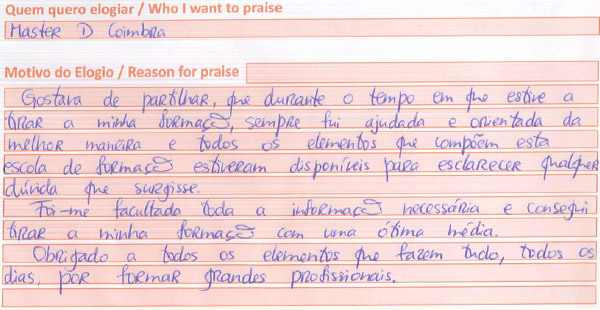 Quem quero elogiar / Who I want to praise
Master D Coimbra
Motivo do Elogio / Reason for praise
Gostava de partilhar, que durante o tempo em que estive a
tirar a minha formação, sempre fui ajudada e orientada da
melhor maneira e todos os elementos que compõem esta
escola de formação estiveram disponíveis para esclarecer qualquer
dúvida que surgisse.
Foi-me facultada toda a informação necessária e consegui
tirar a minha formação com uma ótima média.
Obrigado a todos os elementos que fazem tudo, todos os
dias, por formar grandes profissionais.